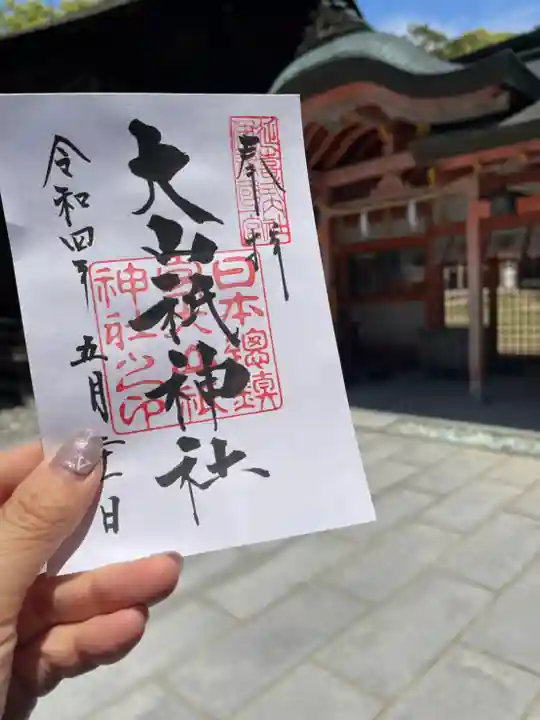 奉拝
大山祇神社
日本總鎮
神社之印
令和四年
五月二十一日